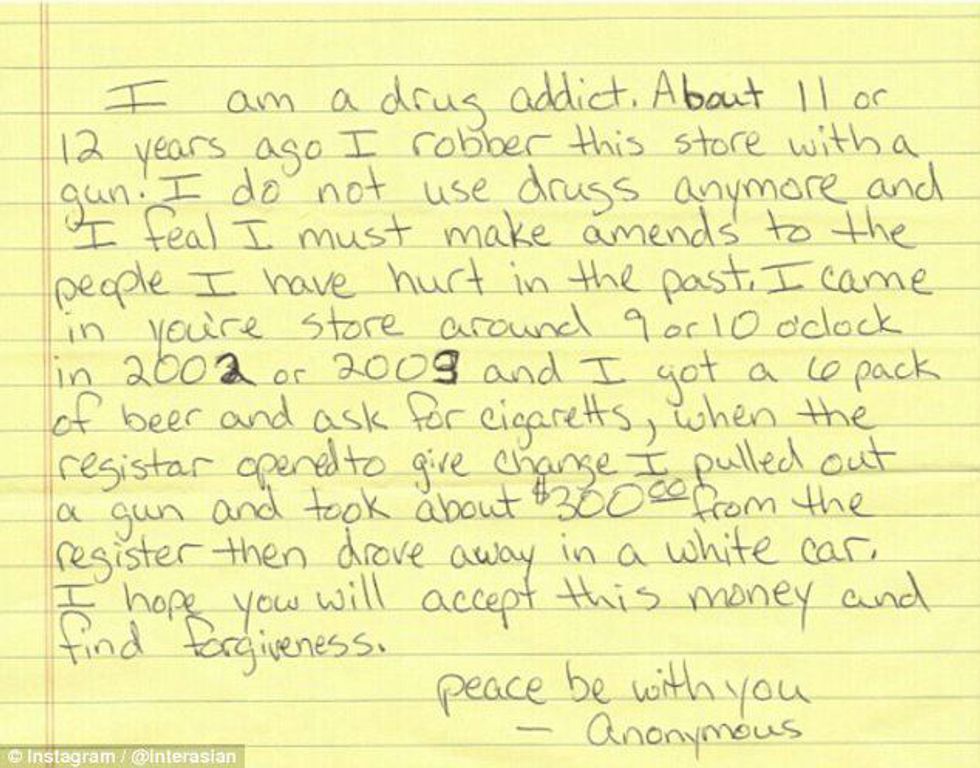 I am a drug addict. About 11 or
12 years ago I robber this store with a
gun. I do not use drugs anymore and
I feal I must make amends to the
people I have hurt in the past. I came
in you're store around 9 or 10 o'clock
in 2002 or 2003 and I got a 6 pack
of beer and ask for cigaretts, when the
registar opened to give change I pulled out
a gun and took about $300.00 from the
register then drove away in a white car.
I hope you will accept this money and
find forgiveness.
peace be with you
- Anonymous
© Instagram / @Interasian